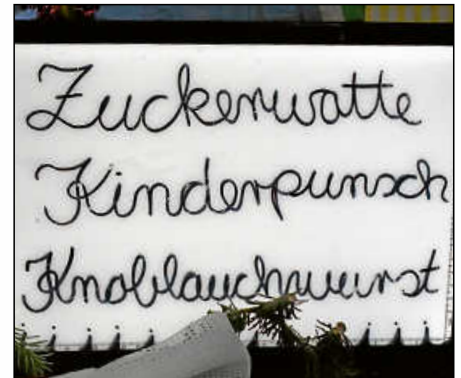 Zuckerwatte
Kinderpunsch
Knoblauchwurst